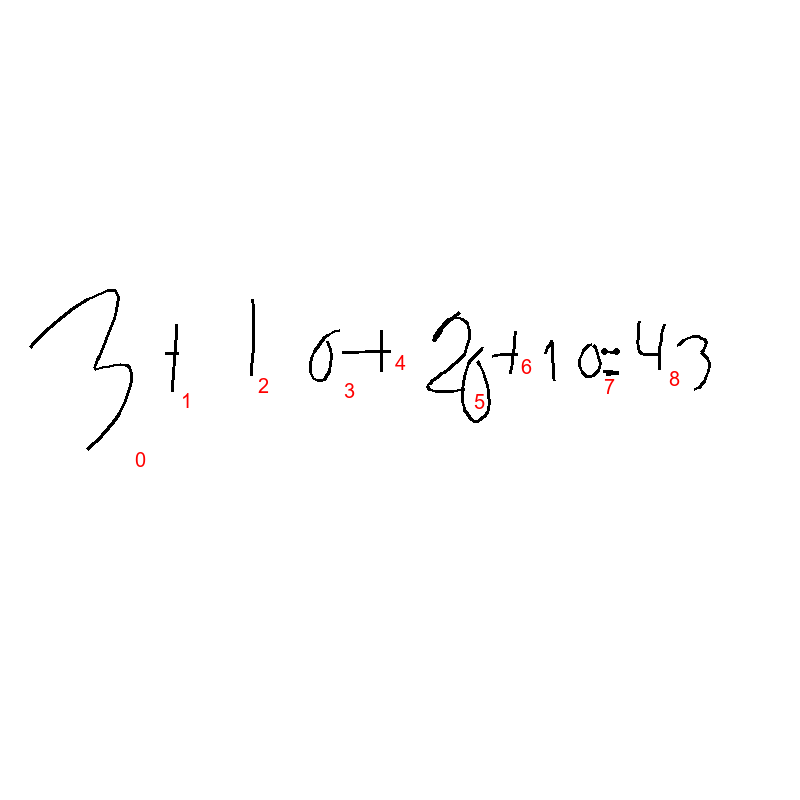 3+10+20+10=43
0 1 2 3 4 5 6 7 8